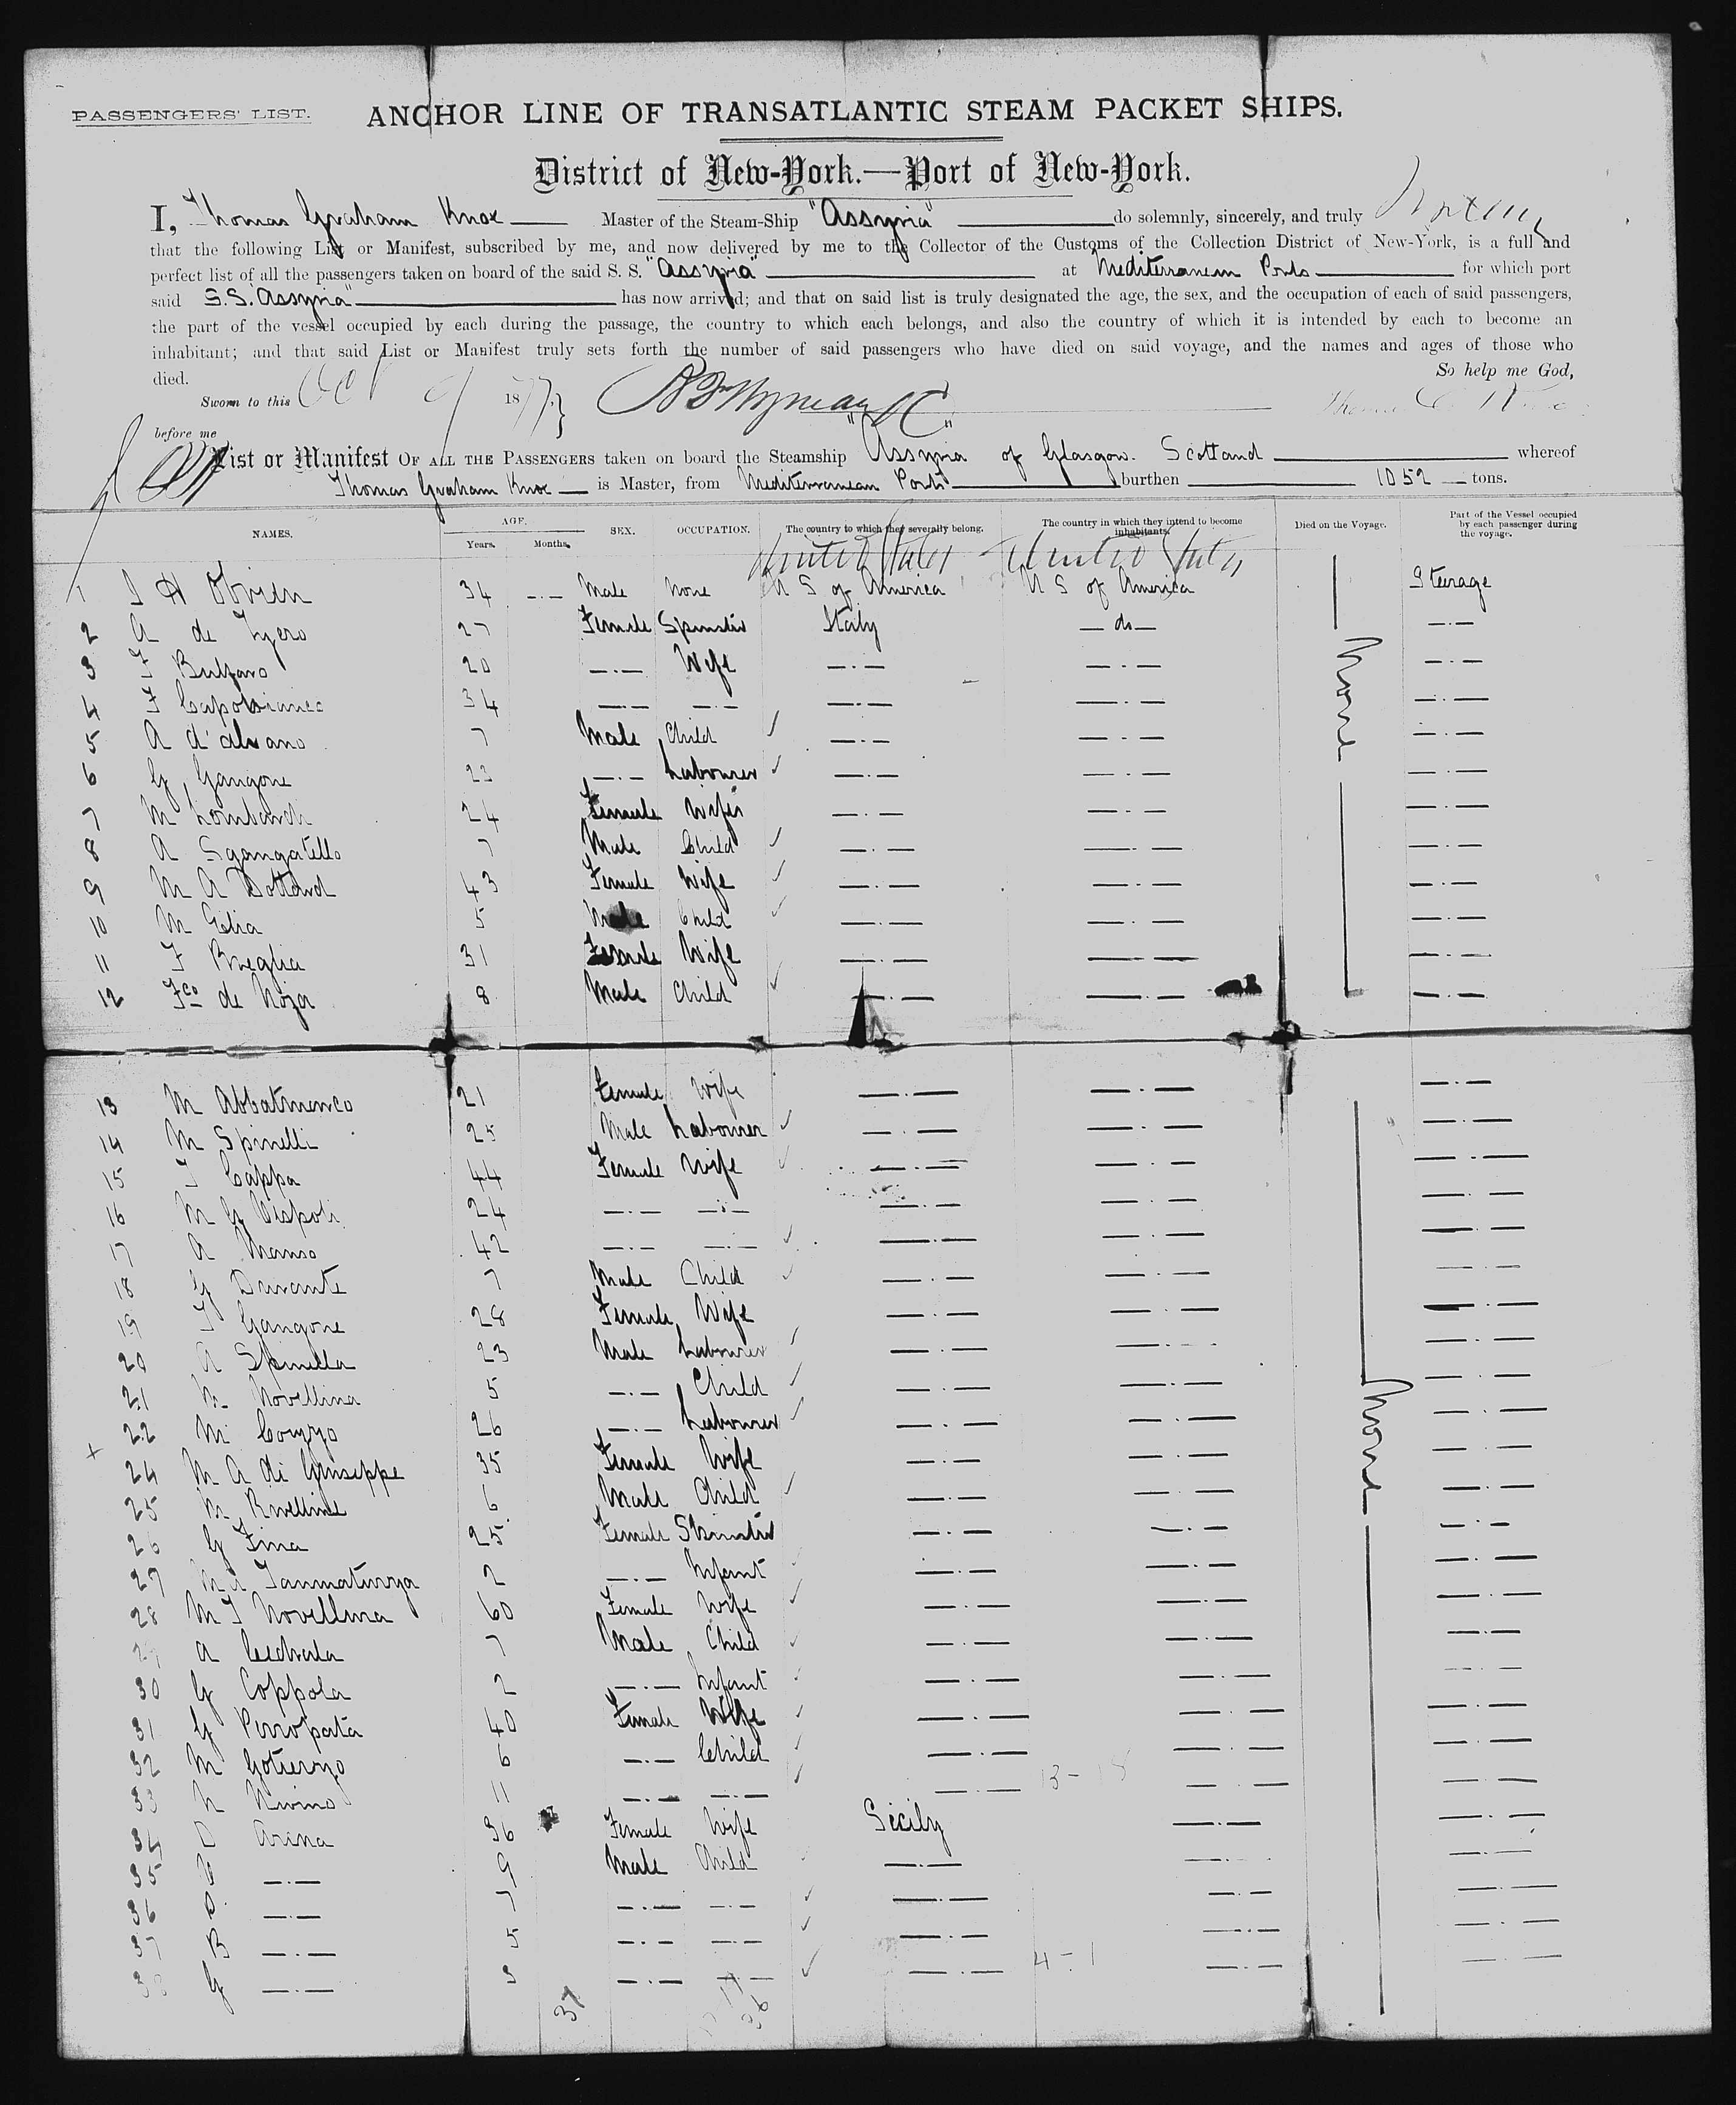 PASSENGERS' LIST. ANCHOR LINE OF TRANSATLANTIC STEAM PACKET SHIPS.
District of New-York.—Port of New-York.
I, Thomas Graham Knox Master of the Steam-Ship "Assyria" do solemnly, sincerely, and truly
that the following List or Manifest, subscribed by me, and now delivered by me to the Collector of the Customs of the Collection District of New-York, is a full and
perfect list of all the passengers taken on board of the said S. S. "Assyria" at Mediterranean Ports for which port
said S.S. "Assyria" has now arrived; and that on said list is truly designated the age, the sex, and the occupation of each of said passengers,
the part of the vessel occupied by each during the passage, the country to which each belongs, and also the country of which it is intended by each to become an
inhabitant; and that said List or Manifest truly sets forth the number of said passengers who have died on said voyage, and the names and ages of those who
died. So help me God,
Sworn to this Oct 9 1877
before me
List or Manifest OF ALL THE PASSENGERS taken on board the Steamship "Assyria" of Glasgow. Scotland whereof
Thomas Graham Knox is Master, from Mediterranean Ports burthen 1052 tons.
NAMES. AGE. Years. Months. SEX. OCCUPATION. The country to which they severally belong. The country in which they intend to become inhabitants. Died on the Voyage. Part of the Vessel occupied by each passenger during the voyage.
United States United States
1 J H OBrien 34 —·— Male None U S of America U S of America Steerage
2 A de 27 Female Spinster Italy — do — —·—
3 F Bulfaro 20 —·— Wife —·— —·— —·—
4 F Capobianco 34 —·— —·— —·— —·— —·—
5 A 7 Male Child —·— —·— —·—
6 G Gangone —·— Labourer —·— —·— —·—
7 M Lombardi 24 Female Wife —·— —·— —·—
8 A Sgangatello 7 Male Child —·— —·— —·—
9 M A 43 Female Wife —·— —·— —·—
10 M Elia 5 Male Child —·— —·— —·—
11 F Breglia 31 Female Wife —·— —·— —·—
12 Fco de Noja 8 Male Child —·— —·— —·—
None
13 M 21 Female Wife —·— —·— —·—
14 M Spinelli 25 Male Labourer —·— —·— —·—
15 Cappa 44 Female Wife —·— —·— —·—
16 M G Vispoli 24 —·— —·— —·— —·— —·—
17 A Manso 42 —·— —·— —·— —·— —·—
18 G Durante 7 Male Child —·— —·— —·—
19 Gangone 28 Female Wife —·— —·— —·—
20 A Spinella 23 Male Labourer —·— —·— —·—
21 Novellina 5 —·— Child —·— —·— —·—
22 M 26 —·— Labourer —·— —·— —·—
24 M A di Giuseppe 35 Female Wife —·— —·— —·—
25 6 Male Child —·— —·— —·—
26 G Fina 25 Female Spinster —·— —·— —·—
27 2 —·— Infant —·— —·— —·—
28 M Novellina 60 Female Wife —·— —·— —·—
29 A Cedrala 7 Male Child —·— —·— —·—
30 G Coppola 2 —·— Infant —·— —·— —·—
31 G Pirropata 40 Female Wife —·— —·— —·—
32 M 6 —·— Child —·— —·— —·—
33 11 —·— —·— —·— 13-18 —·— —·—
34 D Arena 36 Female Wife Sicily —·— —·—
35 —·— 9 Male Child —·— —·— —·—
36 —·— 7 —·— —·— —·— —·— —·—
37 B —·— 5 —·— —·— —·— —·— —·—
38 G —·— 3 —·— —·— —·— 4-1 —·— —·—
None
37